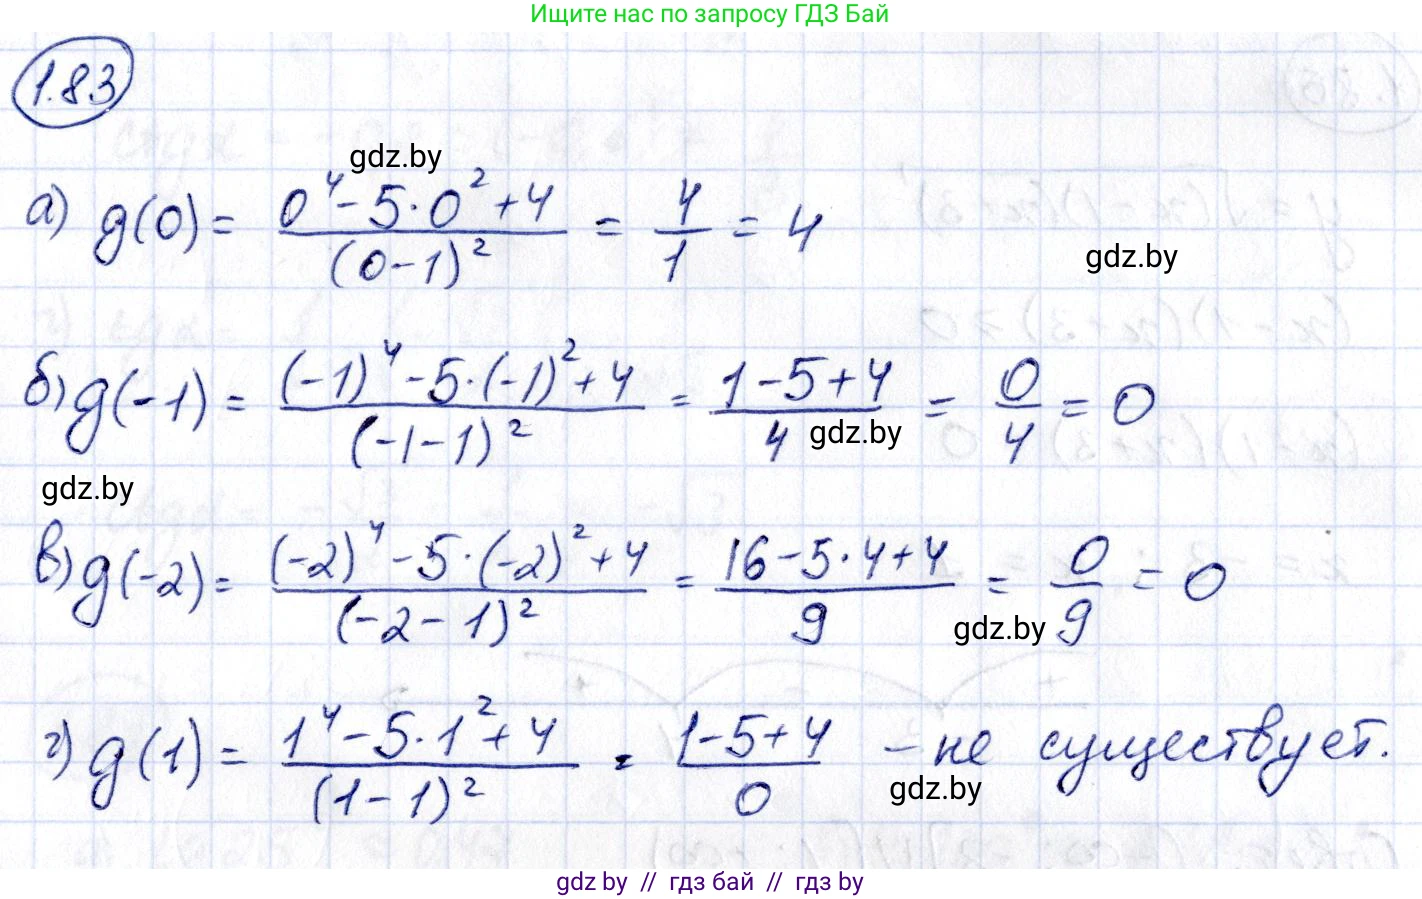 Ищите нас по запросу ГДЗ Бай
1.83
gdz.by
а) g(0) = (0⁴ - 5·0² + 4)/(0 - 1)² = 4/1 = 4
gdz.by
б) g(-1) = ((-1)⁴ - 5·(-1)² + 4)/(-1-1)² = (1 - 5 + 4)/4 = 0/4 = 0
gdz.by
gdz.by
в) g(-2) = ((-2)⁴ - 5·(-2)² + 4)/(-2-1)² = (16 - 5·4 + 4)/9 = 0/9 = 0
gdz.by
г) g(1) = (1⁴ - 5·1² + 4)/(1-1)² = (1 - 5 + 4)/0 - не существует.
gdz.by
gdz by // гдз бай // гдз by